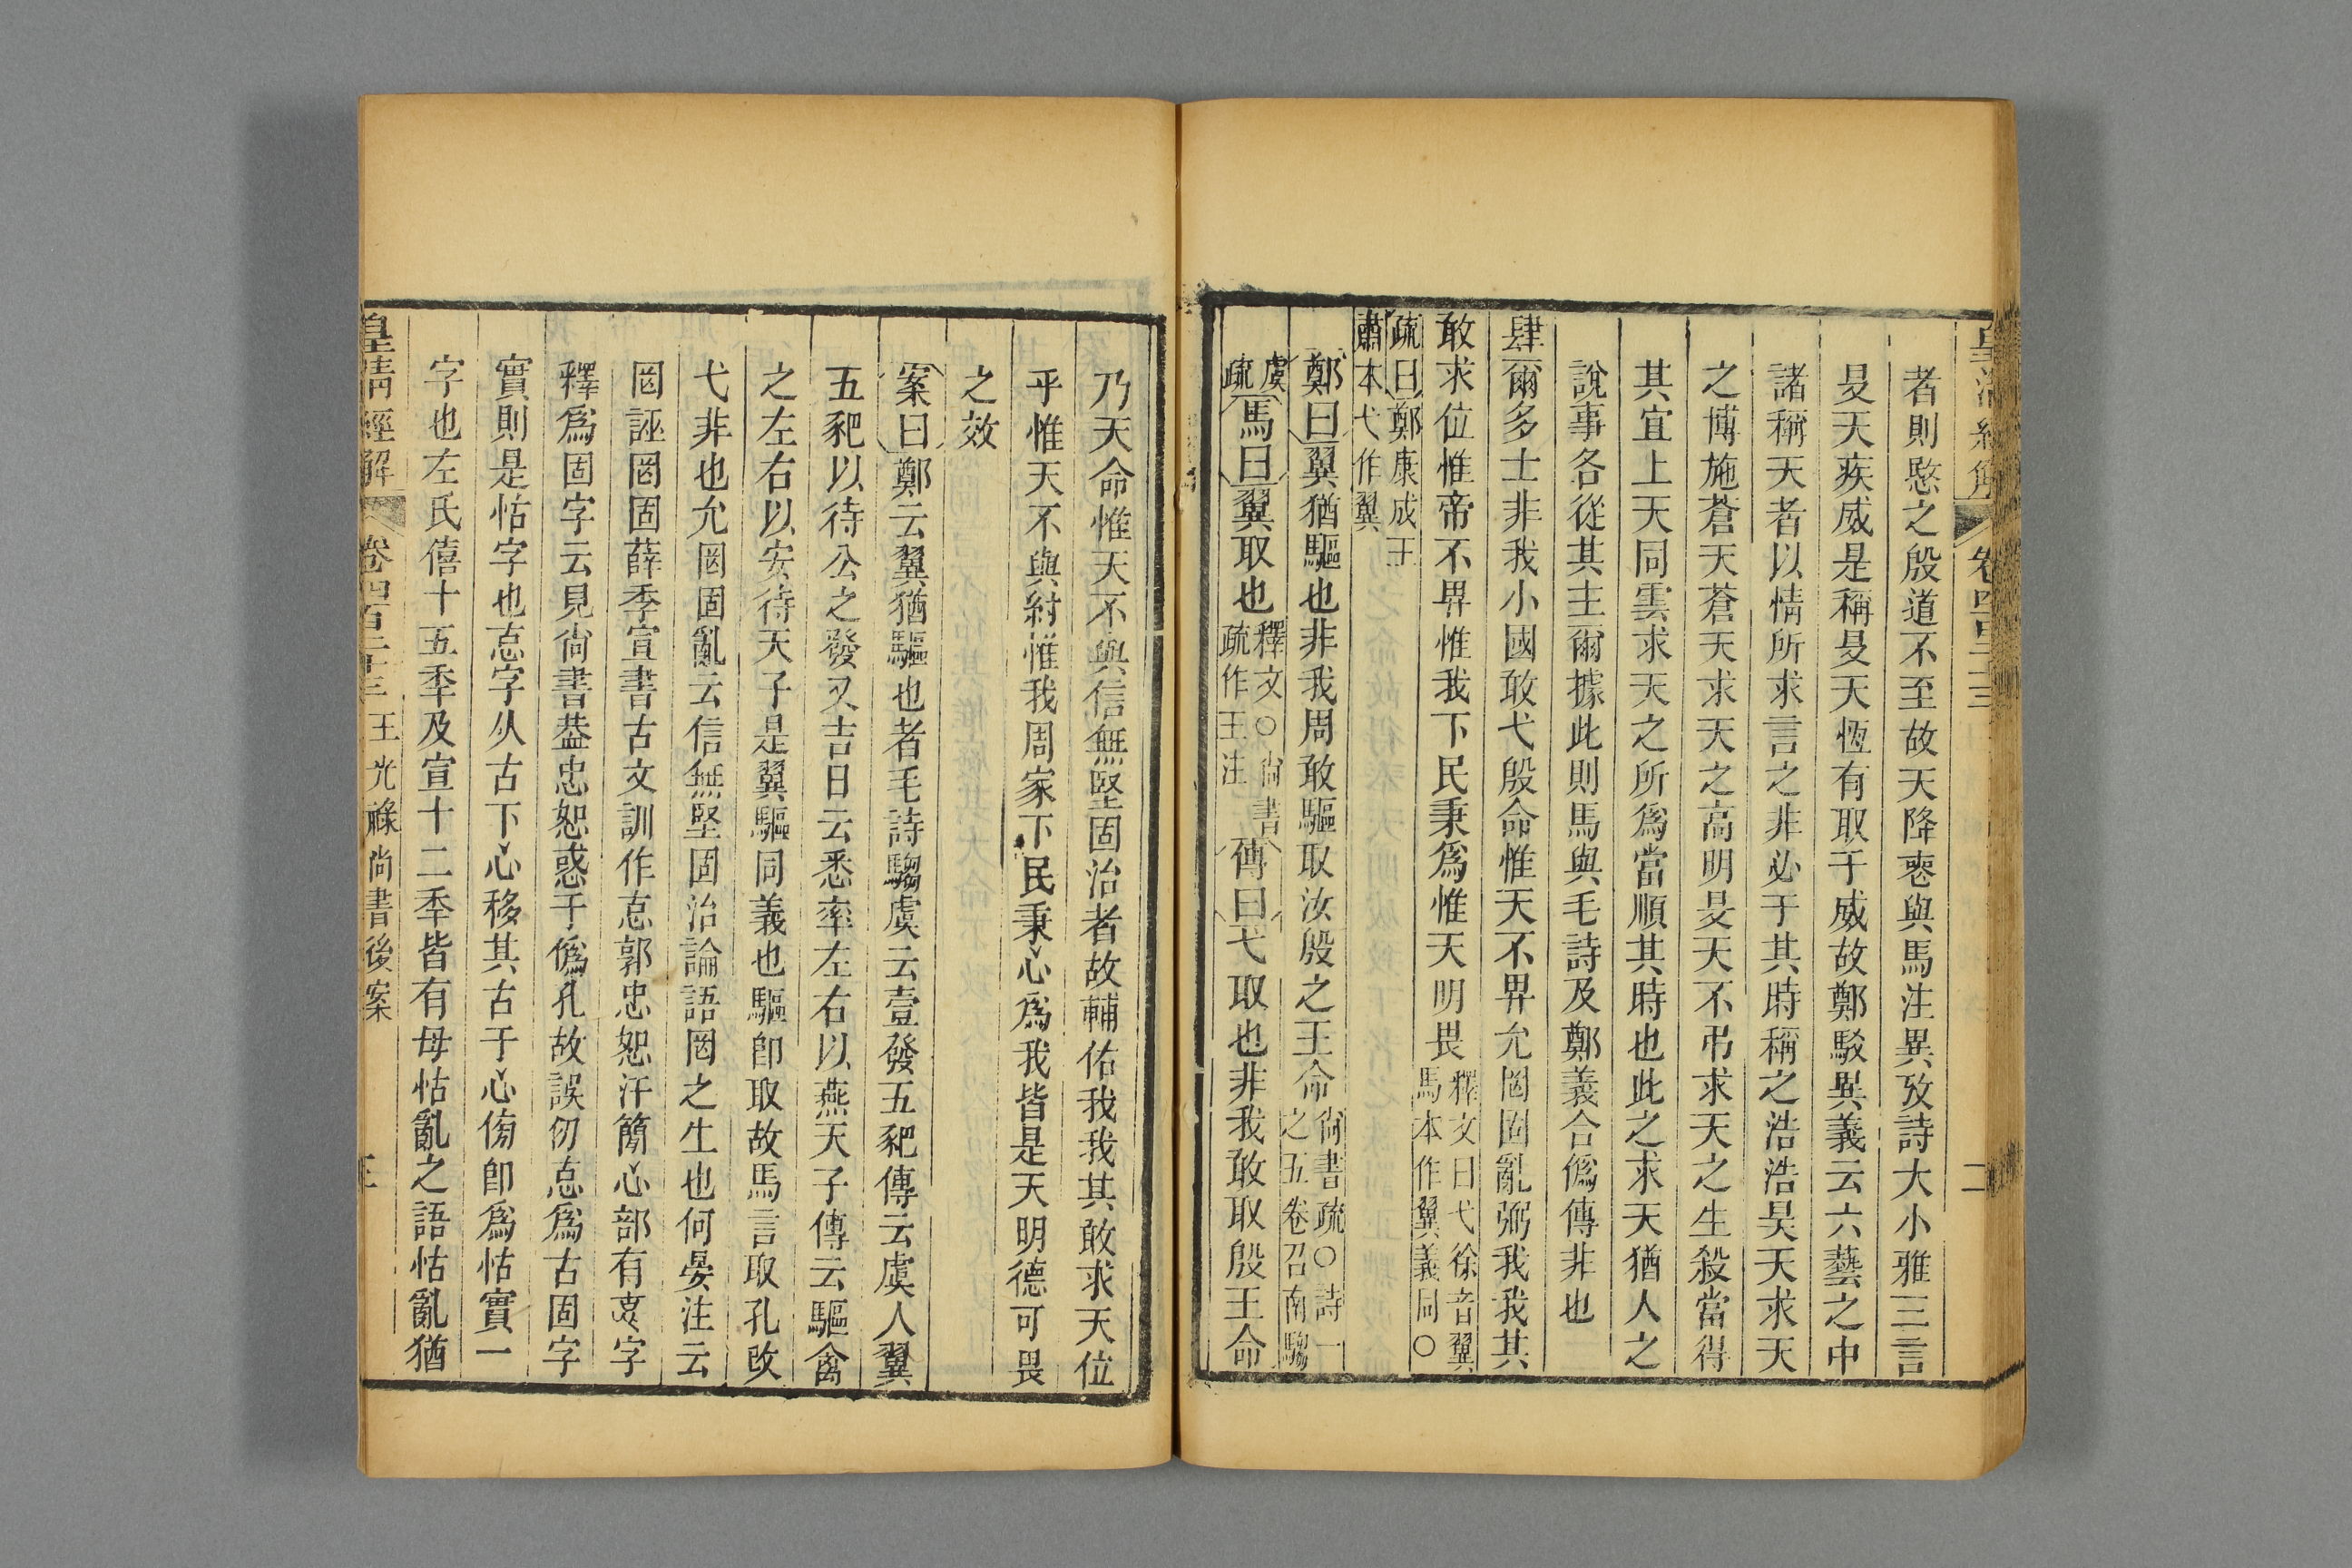 皇清經解 卷四百二十三 二
者則愍之殷道不至故天降喪與馬注異攷詩大小雅三言
旻天疾威是稱旻天恆有取于威故鄭駁異義云六藝之中
諸稱天者以情所求言之非必于其時稱之浩浩昊天求天
之博施蒼天蒼天求天之高明旻天不弔求天之生殺當得
其宜上天同雲求天之所爲當順其時也此之求天猶人之
說事各從其主爾據此則馬與毛詩及鄭義合僞傳非也
肆爾多士非我小國敢弋殷命惟天不畀允罔固亂弼我我其
敢求位惟帝不畀惟我下民秉爲惟天明畏釋文曰弋徐音翼馬本作翼義同○
疏曰鄭康成王肅本弋作翼
鄭曰翼猶驅也非我周敢驅取汝殷之王命尙書疏○詩一之五卷召南騶
虞疏馬曰翼取也釋文○尙書疏作王注傳曰弋取也非我敢取殷王命
乃天命惟天不與信無堅固治者故輔佑我我其敢求天位
乎惟天不與紂惟我周家下民秉心爲我皆是天明德可畏
之效
案曰鄭云翼猶驅也者毛詩騶虞云壹發五豝傳云虞人翼
五豝以待公之發又吉日云悉率左右以燕天子傳云驅禽
之左右以安待天子是翼驅同義也驅卽取故馬言取孔改
弋非也允罔固亂云信無堅固治論語罔之生也何晏注云
罔誣罔固薛季宣書古文訓作㤅郭忠恕汗簡心部有㤅字
釋爲固字云見尙書葢忠恕惑于僞孔故誤仞㤅爲古固字
實則是怙字也㤅字从古下心移其古于心傍卽爲怙實一
字也左氏僖十五年及宣十二年皆有毋怙亂之語怙亂猶
皇清經解 卷四百二十三 王光祿尙書後案 三